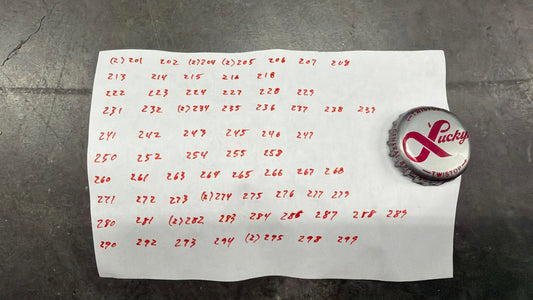 (2) 201 202 (2) 204 (2) 205 206 207 208
213 214 215 216 218
222 223 224 227 228 229
231 232 (2) 234 235 236 237 238 239
241 242 243 245 246 247
250 252 254 255 258
260 261 263 264 265 266 267 268
271 272 273 (2) 274 275 276 277 279
280 281 (2) 282 283 284 286 287 288 289
290 292 293 294 (2) 295 298 299
Lucky
TWISTOP